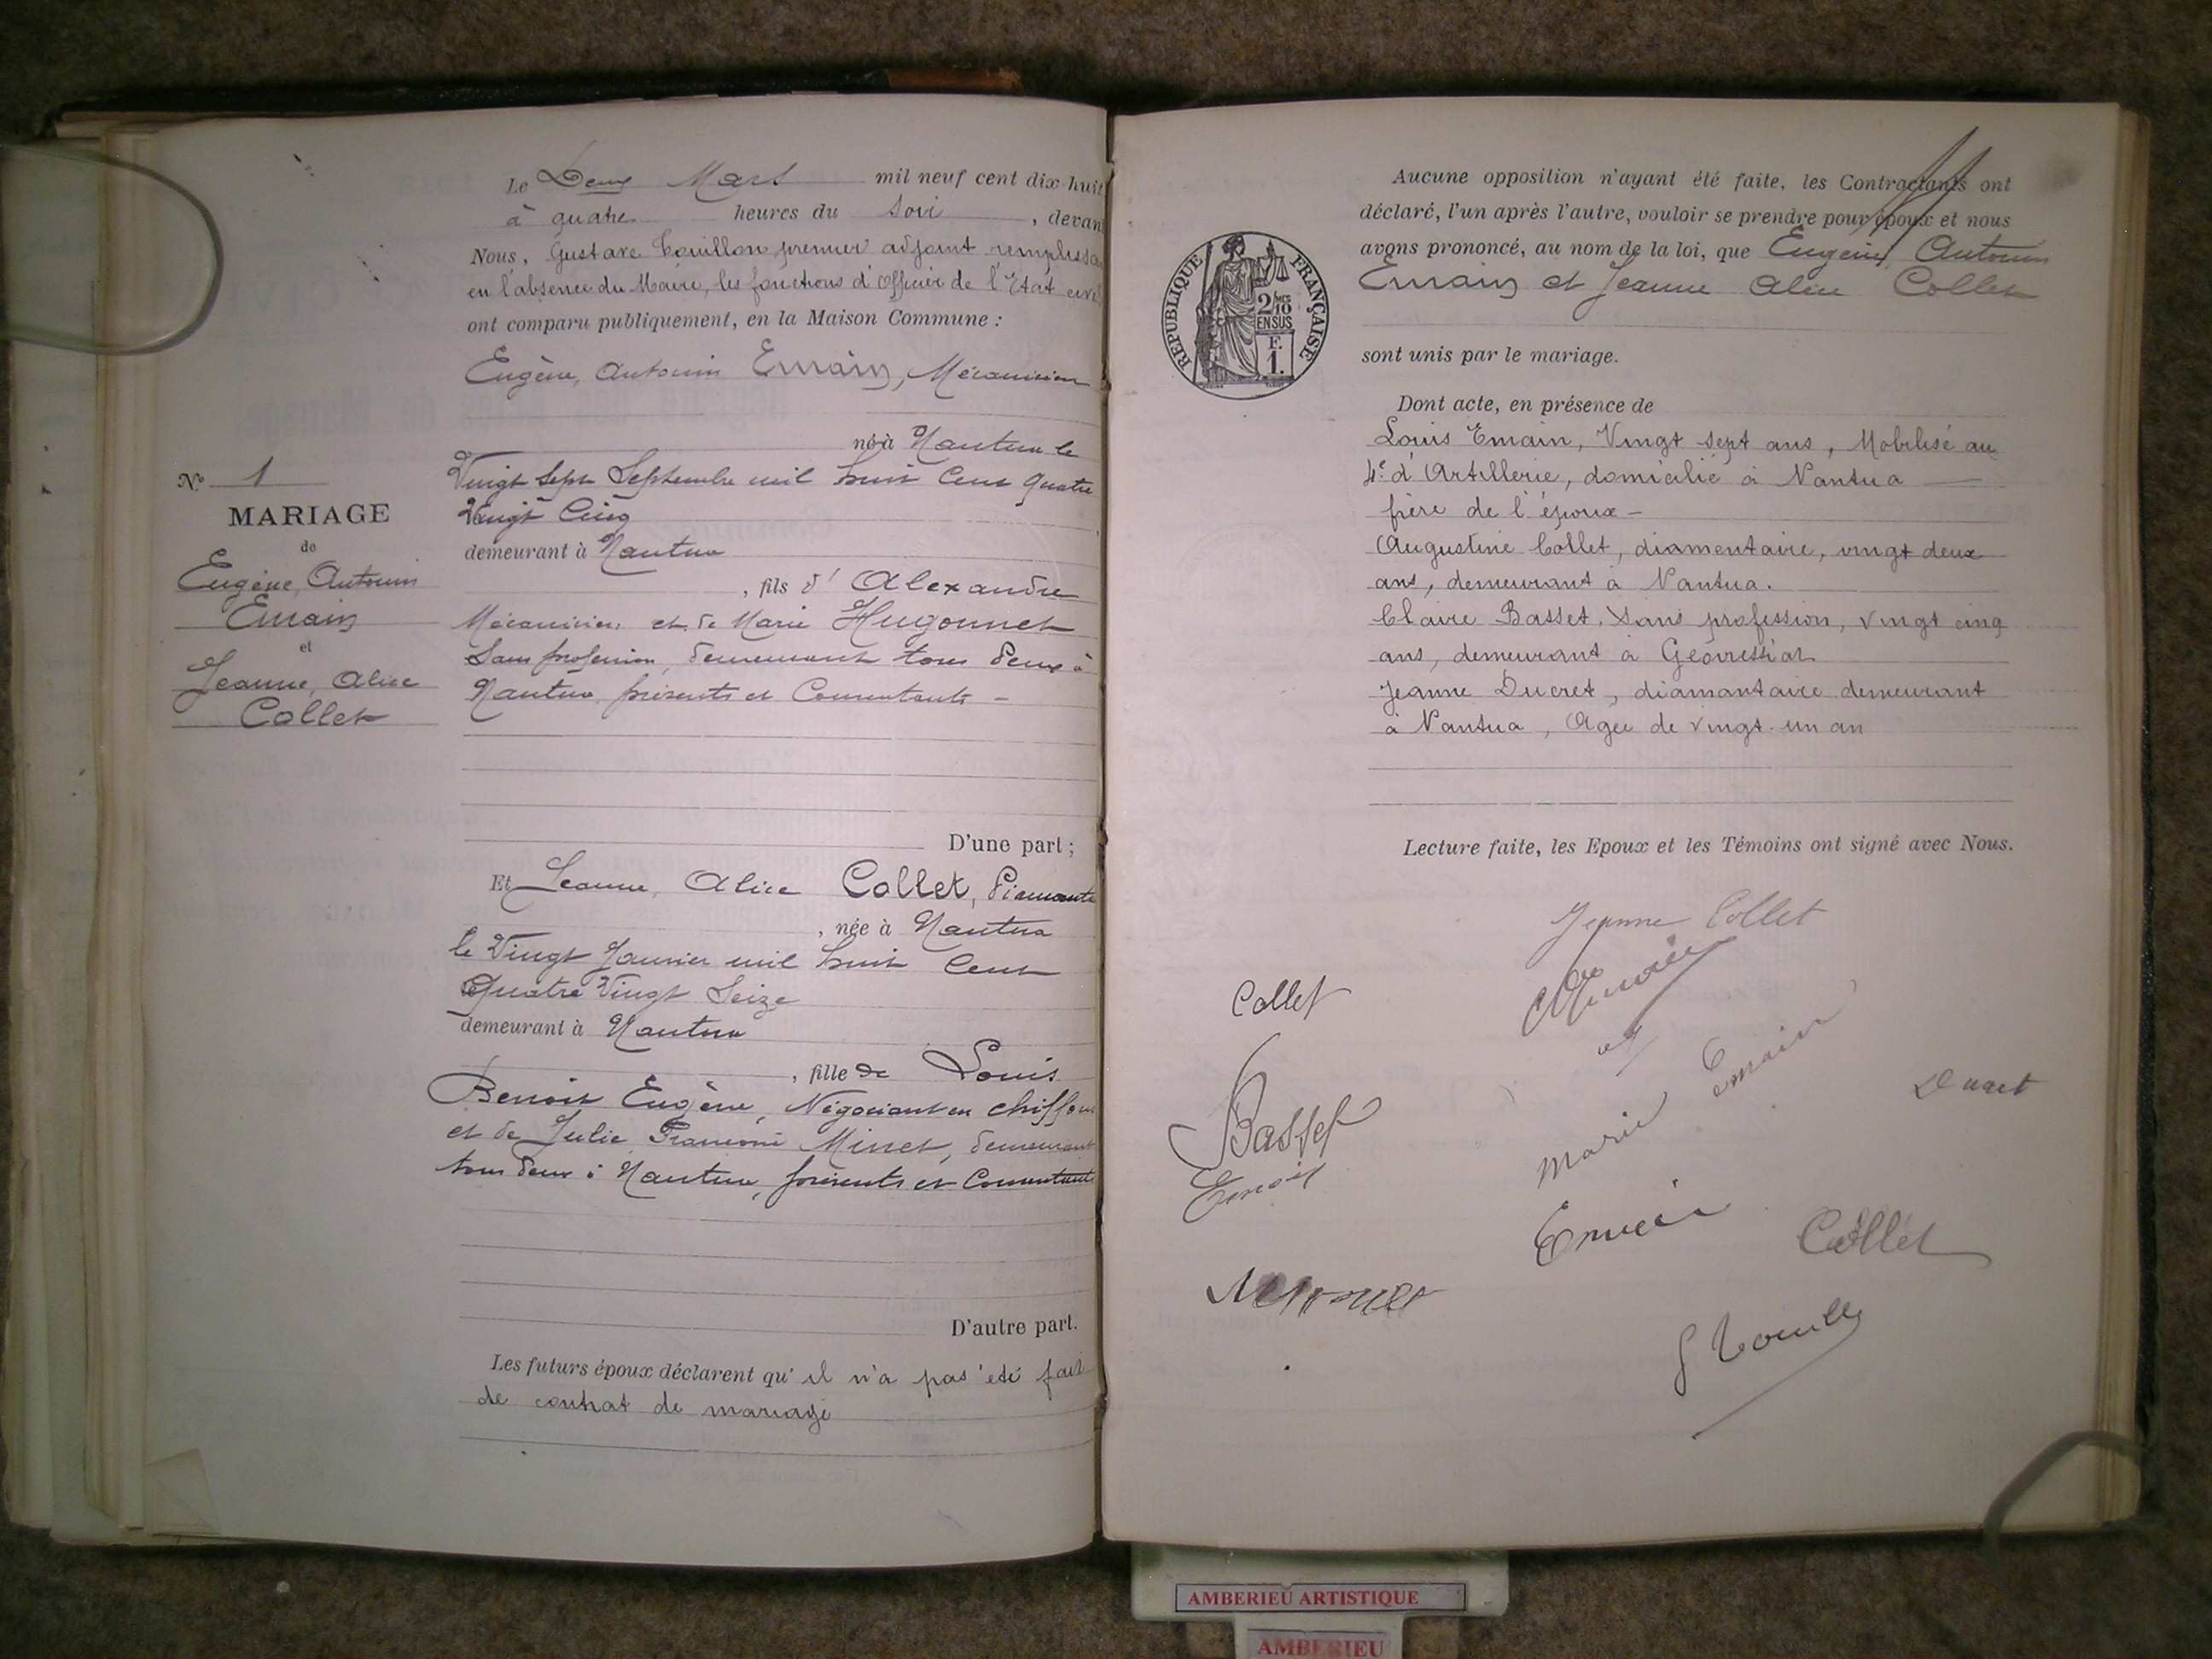 Le Deux Mars mil neuf cent dix-huit
à quatre heures du soir, devan
Nous, Gustave Touillon premier adjoint remplissa
en l'absence du Maire, les fonctions d'Officier de l'Etat civil
ont comparu publiquement, en la Maison Commune :
Eugène, Antonin Emain, Mécanicien
né à Nantua le
Vingt Sept Septembre mil huit Cent Quatre
Vingt Cinq
demeurant à Nantua
, fils d' Alexandre
Mécanicien et de Marie Hugonnet
Sans profession, demeurant tous deux à
Nantua présents et Consentants -
D'une part ;
Et Jeanne, Alice Collet, Diamanta
, née à Nantua
le Vingt Janvier mil huit Cent
Quatre Vingt Seize
demeurant à Nantua
, fille de Louis
Benoit Eugène, Négociant en chiffons
et de Julie Minet, demeurant
tous deux à Nantua, présents et Consentants
D'autre part.
Les futurs époux déclarent qu'il n'a pas été fait
de contrat de mariage
No 1
MARIAGE
de
Eugène, Antonin
Emain
et
Jeanne, Alice
Collet
REPUBLIQUE FRANÇAISE
2/10
EN SUS
F.
1.
Aucune opposition n'ayant été faite, les Contractants ont
déclaré, l'un après l'autre, vouloir se prendre pour époux et nous
avons prononcé, au nom de la loi, que Eugène, Antonin
Emain et Jeanne Alice Collet
sont unis par le mariage.
Dont acte, en présence de
Louis Emain, Vingt sept ans, Mobilisé au
4e d'Artillerie, domicilié à Nantua
frère de l'époux -
Augustine Collet, diamentaire, vingt deux
ans, demeurant à Nantua.
Claire Basset, Sans profession, vingt cinq
ans, demeurant à Géovressiat
Jeanne Ducret, diamantaire demeurant
à Nantua, Agée de vingt-un an
Lecture faite, les Epoux et les Témoins ont signé avec Nous.
Jeanne Collet
Collet
Marie Emain
Ducret
Basset
Emain
Emain
Collet
AMBERIEU ARTISTIQUE
AMBERIEU